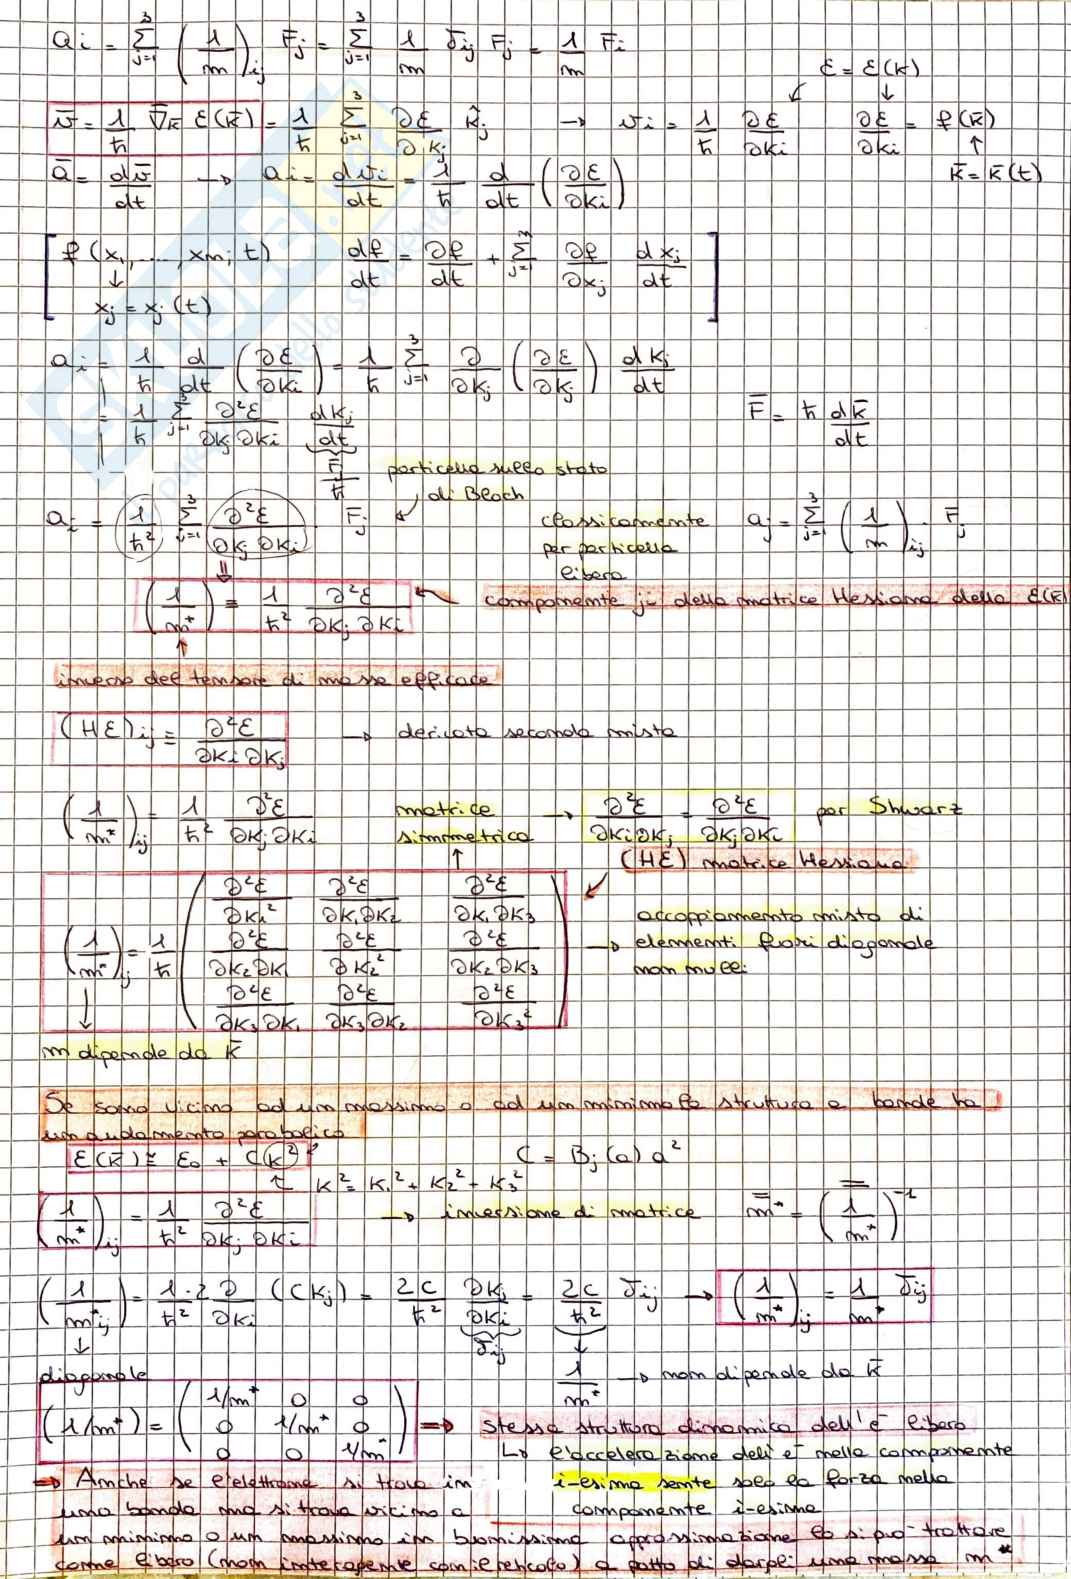 a_i = Σ_{j=1}^{3} (1/m)_{ij} F_j = Σ_{j=1}^{3} 1/m δ_{ij} F_j = 1/m F_i
ε = ε(k)
v̄ = 1/ħ ∇̄_k̄ ε(k̄) = 1/ħ Σ_{j=1}^{3} ∂ε/∂k_j k̂_j → v_i = 1/ħ ∂ε/∂k_i ∂ε/∂k_i = f(k̄)
ā = dv̄/dt → a_i = dv_i/dt = 1/ħ d/dt (∂ε/∂k_i) k̄ = k̄(t)
[ f(x_1, ...., x_m; t) df/dt = ∂f/∂t + Σ_{j=1}^{m} ∂f/∂x_j dx_j/dt ]
↓
x_j = x_j(t)
a_i = 1/ħ d/dt (∂ε/∂k_i) = 1/ħ Σ_{j=1}^{3} ∂/∂k_j (∂ε/∂k_j) dk_j/dt
= 1/ħ Σ_{j=1}^{3} ∂²ε/∂k_j∂k_i dk_j/dt F̄ = ħ dk̄/dt
F_j/ħ particella sullo stato
di Bloch
a_i = 1/ħ² Σ_{j=1}^{3} ∂²ε/∂k_j∂k_i F_j classicamente a_j = Σ_{j=1}^{3} (1/m)_{ij} · F_j
per particella
libera
(1/m*) ≡ 1/ħ² ∂²ε/∂k_j∂k_i ← componente ji della matrice Hessiana della ε(k̄)
↑
inverso del tensore di massa efficace
(Hε)_{ij} ≡ ∂²ε/∂k_i∂k_j → derivata seconda mista
(1/m*)_{ij} = 1/ħ² ∂²ε/∂k_j∂k_i matrice simmetrica → ∂²ε/∂k_i∂k_j = ∂²ε/∂k_j∂k_i per Shwarz
(Hε) matrice Hessiana
∂²ε/∂k_1² ∂²ε/∂k_1∂k_2 ∂²ε/∂k_1∂k_3
(1/m*)_j = 1/ħ ∂²ε/∂k_2∂k_1 ∂²ε/∂k_2² ∂²ε/∂k_2∂k_3 → accoppiamento misto di
∂²ε/∂k_3∂k_1 ∂²ε/∂k_3∂k_2 ∂²ε/∂k_3² elementi fuori diagonale
non nulli
m dipende da k̄
Se sono vicino ad un massimo o ad un minimo la struttura a bande ha
un andamento parabolico
ε(k̄) ≅ ε_0 + C(k²) C = B_j(a) a²
k² = k_1² + k_2² + k_3²
(1/m*)_{ij} = 1/ħ² ∂²ε/∂k_j∂k_i → inversione di matrice m̿* = (1/m*)^{-1}
(1/m*_{ij}) = 1·2/ħ² ∂/∂k_i (C k_j) = 2C/ħ² ∂k_j/∂k_i = 2C/ħ² δ_{ij} → (1/m*)_{ij} = 1/m* δ_{ij}
↓ δ_{ij} ↓
diagonale 1/m* → non dipende da k̄
1/m* 0 0
(1/m*) = 0 1/m* 0 ⇒ stessa struttura dinamica dell'e⁻ libero
0 0 1/m* ↳ l'accelerazione dell'e⁻ nella componente
i-esima sente solo la forza nella
componente i-esima
⇒ Anche se l'elettrone si trova in
una banda ma si trova vicino a
un minimo o un massimo in buonissima approssimazione lo si può trattare
come libero (non interagente con il reticolo) a patto di dargli una massa m*